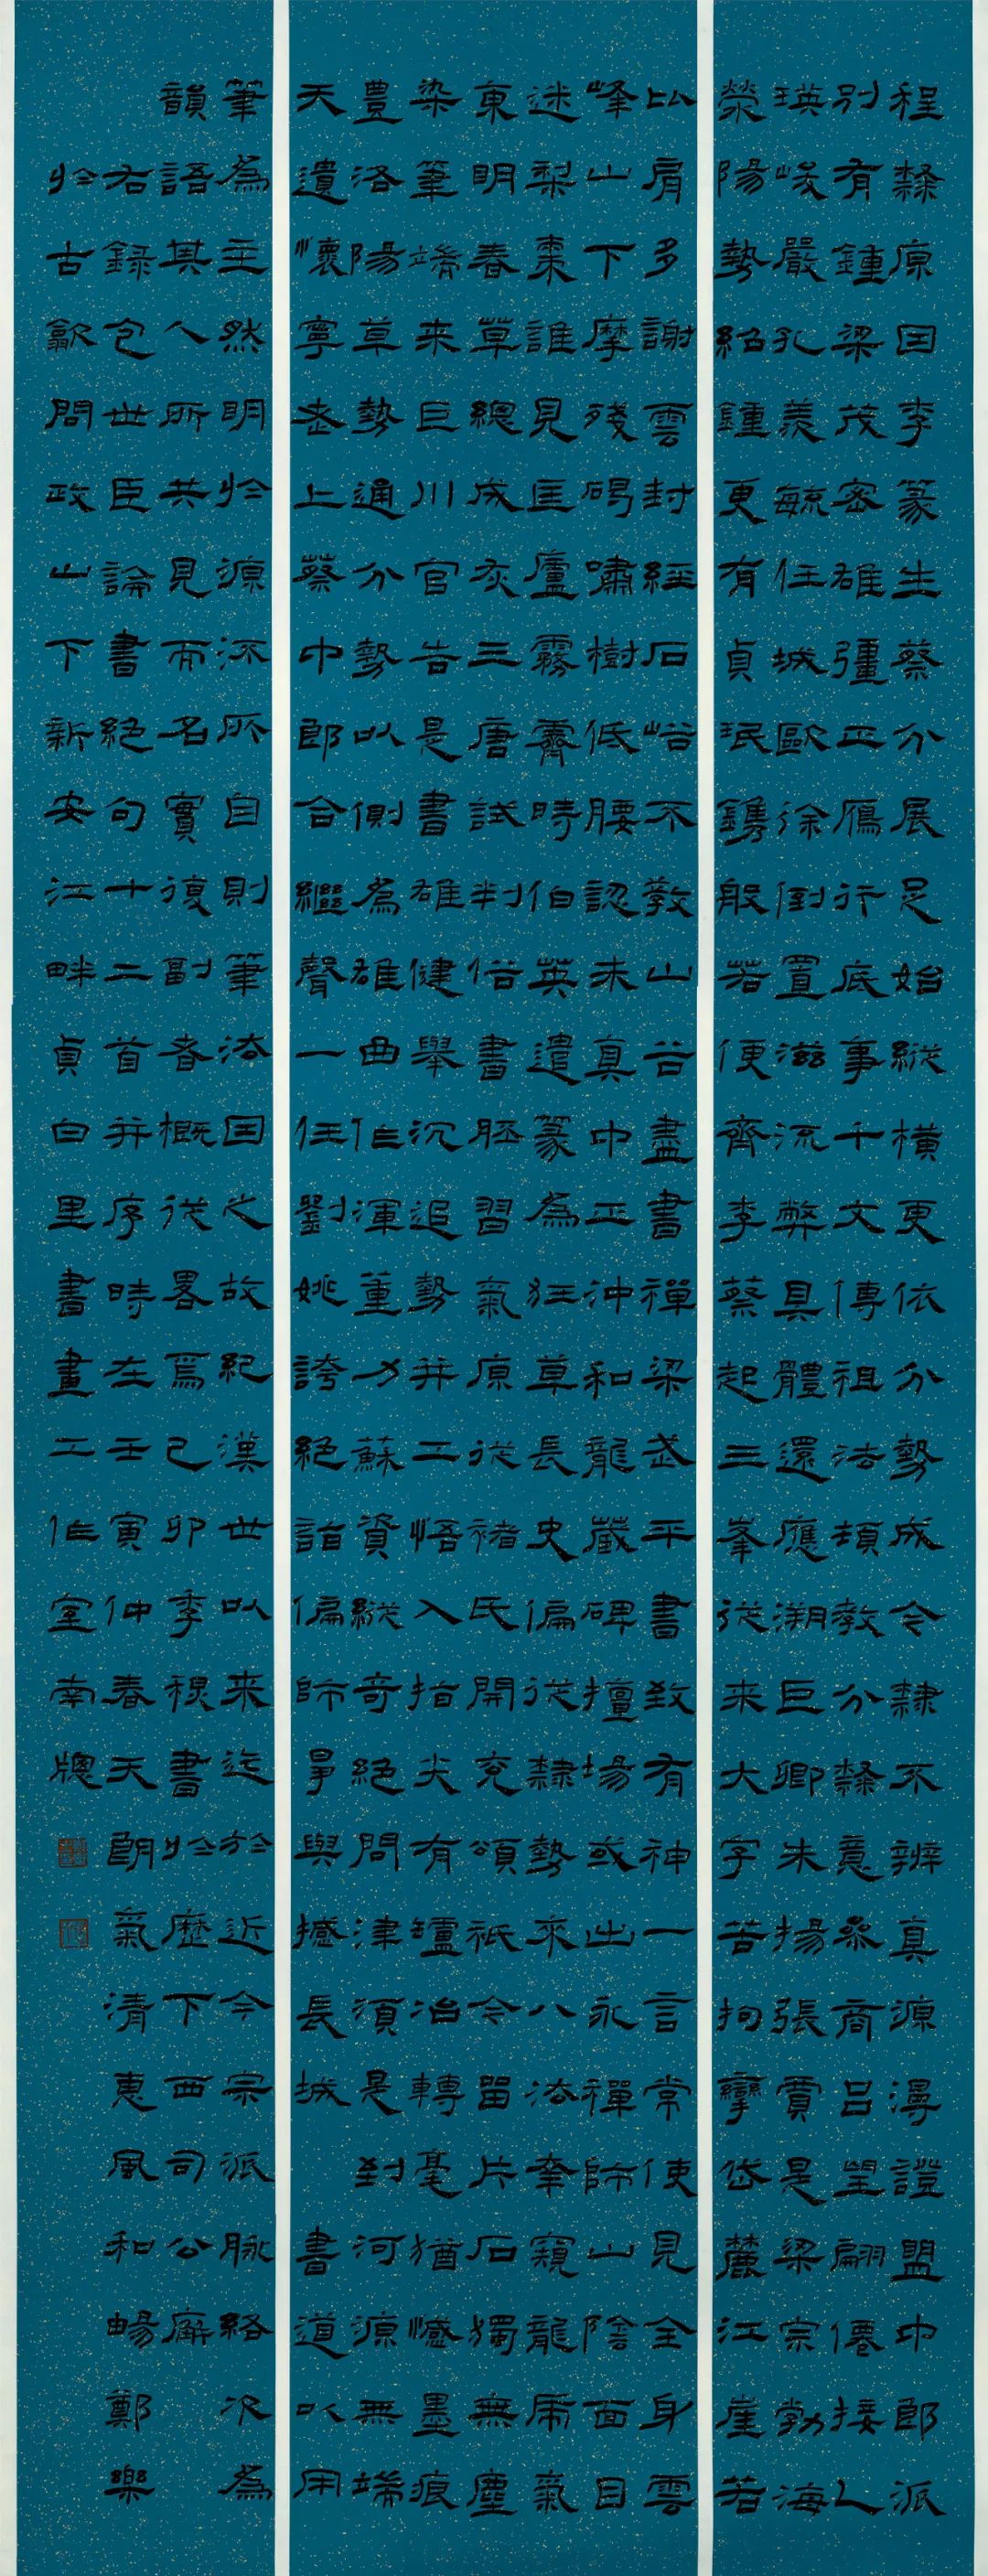 程隸原因李篆生蔡分展足始縱橫更依分勢成今隸不辨真源漫證盟中郎派
別有鍾梁茂密雄彊正鴈行底事千文傳祖法頓教分隸意參商呂望翩僊接乙
瑛峻嚴孔羨毓任城歐徐倒置滋流弊具體還應溯巨卿朱揚張賈是梁宗勃海
滎陽勢紹鍾更有貞珉鐫般若便齊李蔡起三峯從来大字苦拘攣岱麓江崖若
比肩多謝雲封經石峪不教山谷盡書禪梁武平書致有神一言常使見全身雲
峰山下摩殘碣嘯樹低腰認未真中正沖和龍藏碑擅場或出永禪師山陰面目
迷梨棗誰見匡廬霧霽時伯英遺篆為狂草長史偏從隸勢來八法幸窺龍虎氣
東明春草總成灰三唐試判俗書胚習氣原從褚氏開兗頌祇今留片石獨無塵
染筆端来巨川官告是書雄健舉沉追勢并工悟入指尖有鑪冶轉毫猶憾墨痕
豊洛陽草勢通分勢以側為雄曲作渾董力蘇資縱奇絕問津須是到河源無端
天遺懷寧老上蔡中郎合繼聲一任劉姚誇絕詣偏師爭與撼長城書道以用
筆為主然明於源流所自則筆法因之故紀漢世以来迄於近今宗派脉絡次為
韻語其人所共見而名實復副者概從畧焉己卯季穐書於歷下西司公廨
右録包世臣論書絕句十二首并序時在壬寅仲春天朗氣清惠風和暢鄭樂
於古歙問政山下新安江畔貞白里書畫工作室南牕